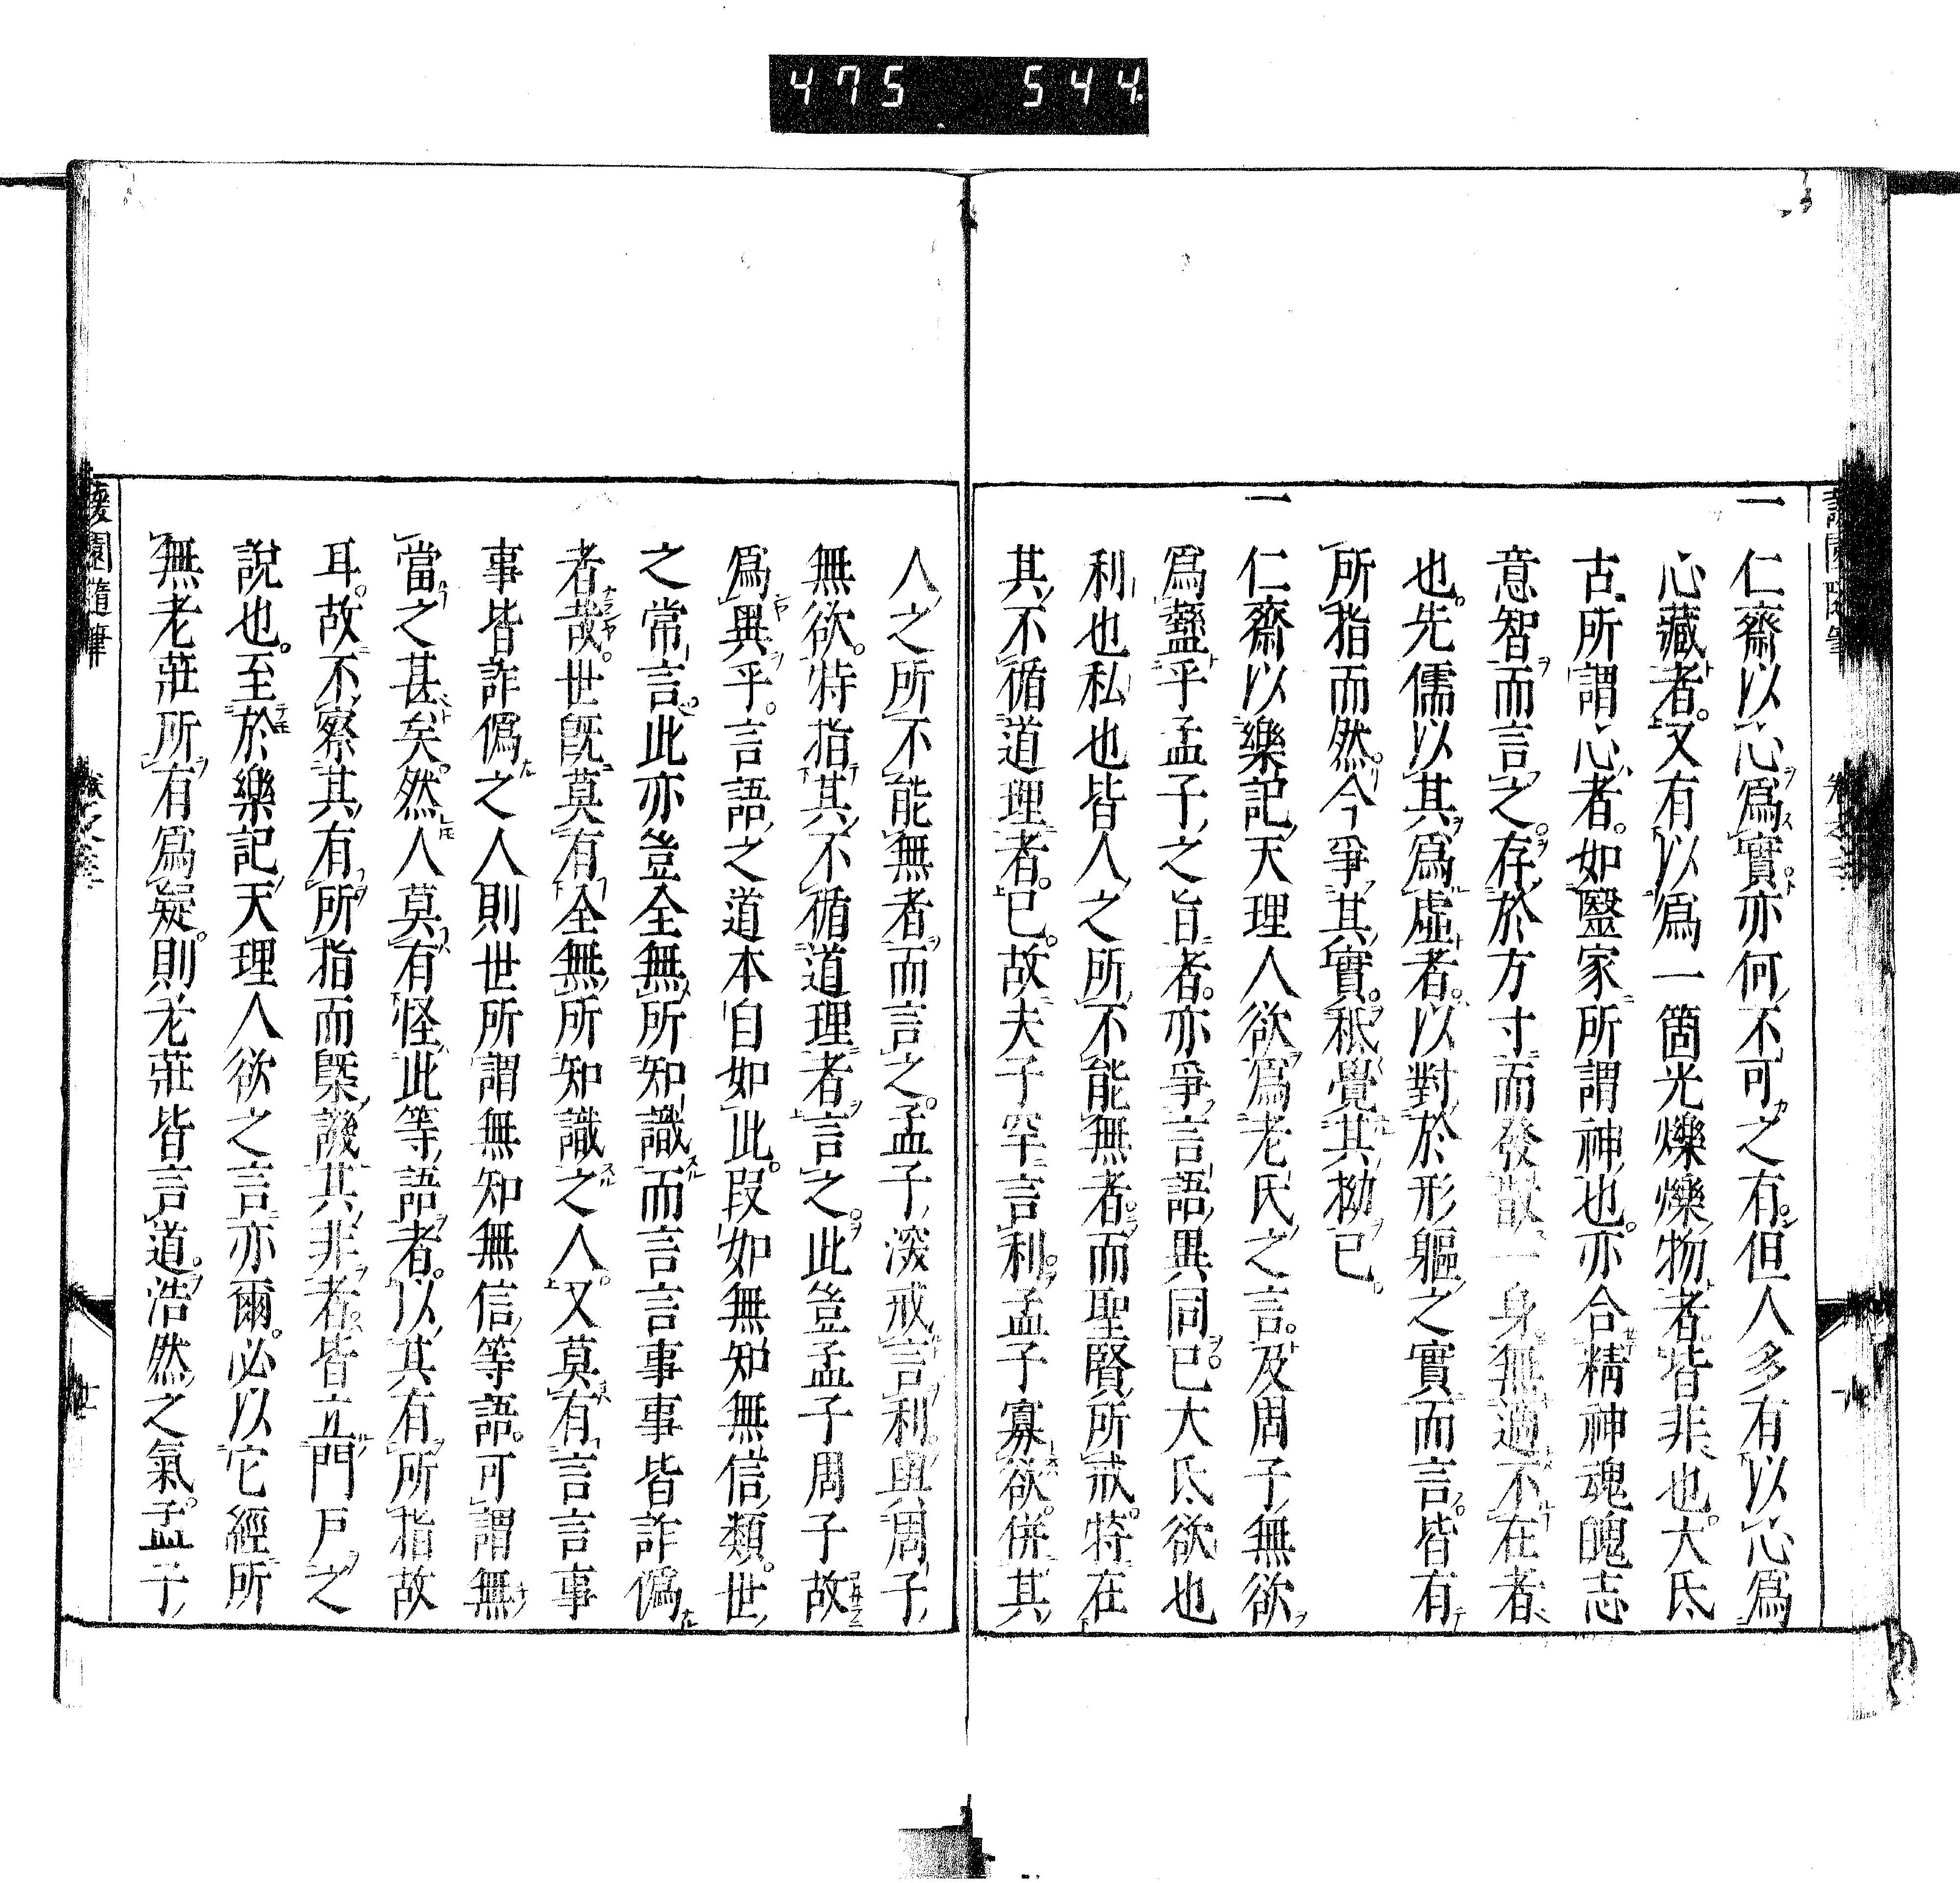 475 544
一仁齋以心爲實亦何不可之有但人多有以心爲
心藏者又有以爲一箇光爍爍物者皆非也大氐
古所謂心者如醫家所謂神也亦合精神魂魄志
意智而言之存於方寸而發散一身無適不在者
也先儒以其爲虛者以對於形軀之實而言皆有
所指而然今爭其實秪覺其拗已
一仁齋以樂記天理人欲爲老氏之言及周子無欲
爲盭乎孟子之旨者亦爭言語異同已大氐欲也
利也私也皆人之所不能無者而聖賢所戒特在
其不循道理者已故夫子罕言利孟子寡欲併其
人之所不能無者而言之孟子深戒言利與周子
無欲特指其不循道理者言之此豈孟子周子故
爲異乎言語之道本自如此叚如無知無信類世
之常言此亦豈全無所知識而言言事事皆詐僞
者哉世既莫有全無所知識之人又莫有言言事
事皆詐僞之人則世所謂無知無信等語可謂無
當之甚矣然人莫有怪此等語者以其有所指故
耳故不察其有所指而槩譏其非者皆立門戸之
說也至於樂記天理人欲之言亦爾必以它經所
無老莊所有爲疑則老莊皆言道浩然之氣孟子
園隨筆